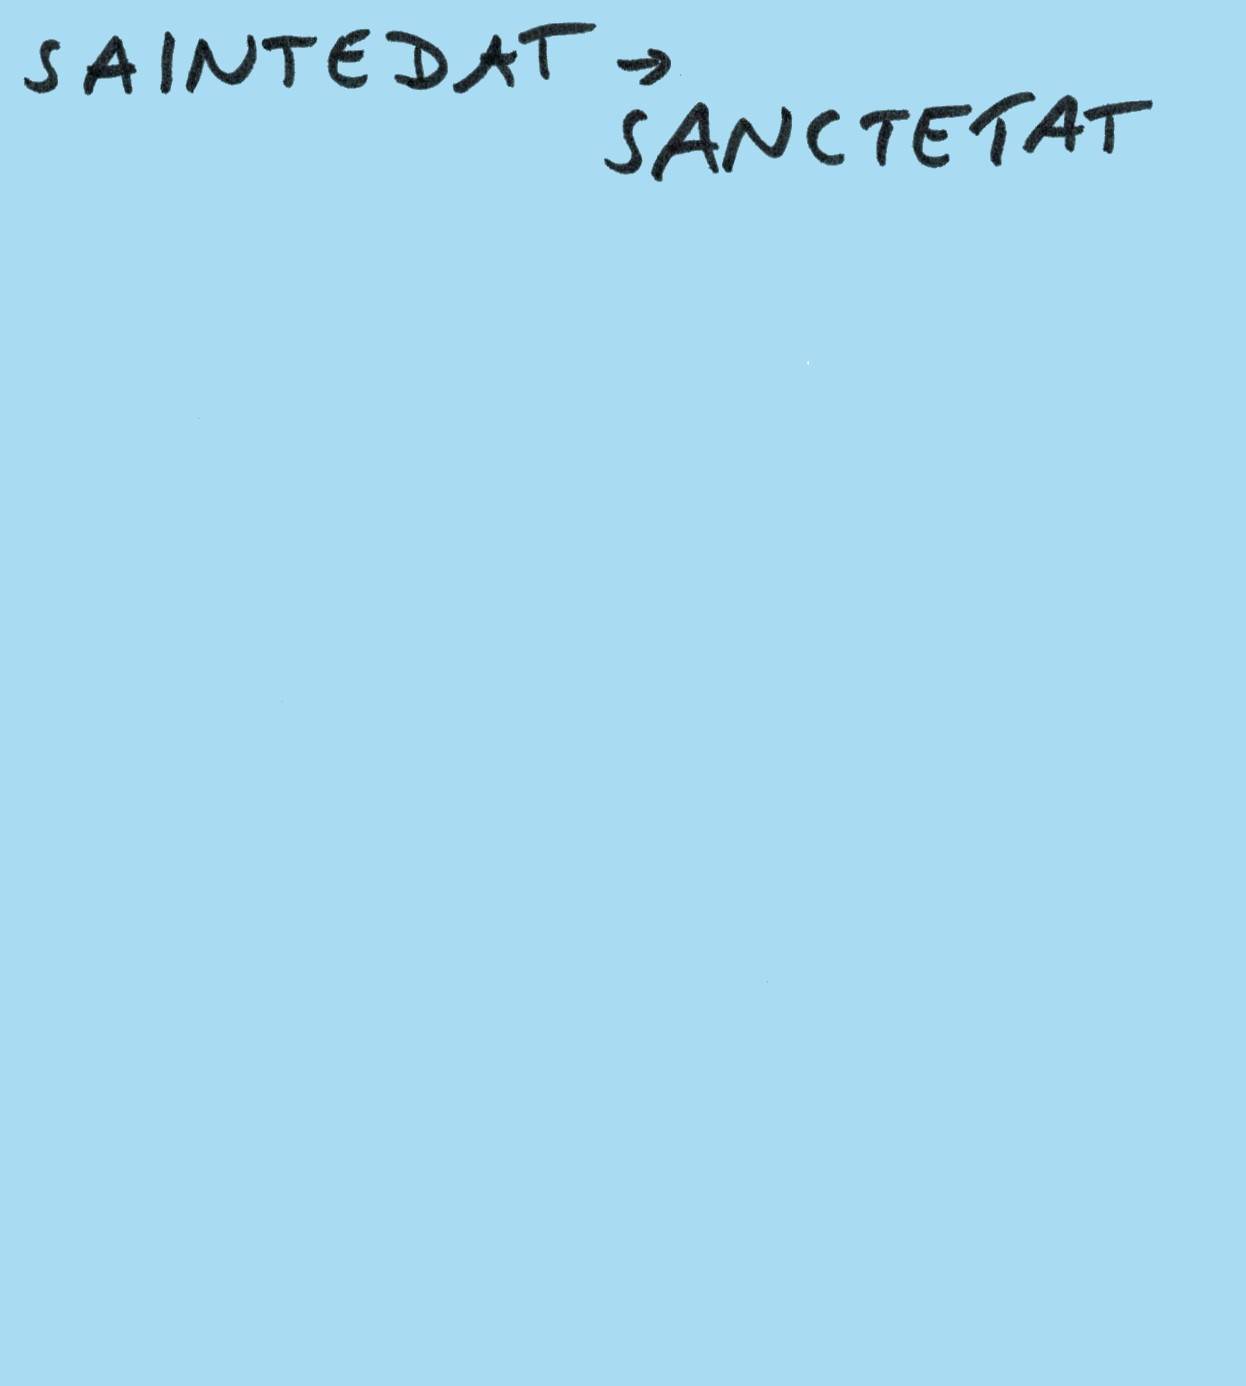 SAINTEDAT →
SANCTETAT